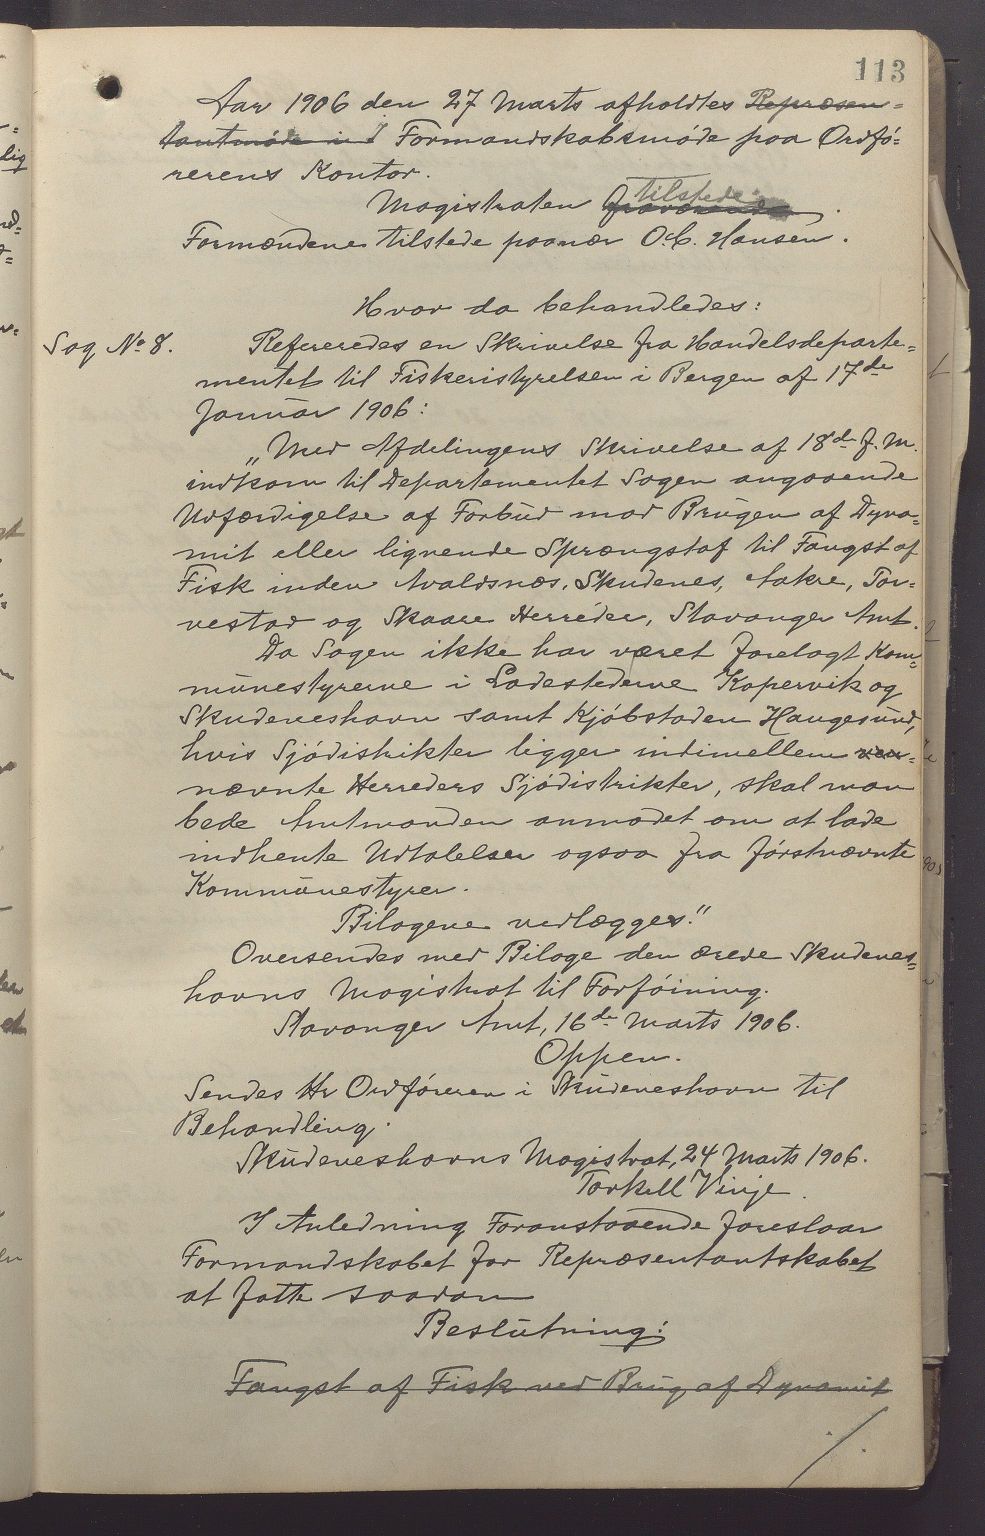 113
Aar 1906 den 27 Marts afholdtes Repræsen-
tantmøde i Formandskabsmøde paa Ordfø-
rerens Kontor.
tilstede
Magistraten fraværende.
Formændene tilstede paanær O. C. Hansen.
Hvor da behandledes:
Sag No 8. Refereredes en Skrivelse fra Handelsdeparte-
mentet til Fiskeristyrelsen i Bergen af 17de
Januar 1906:
„Med Afdelingens Skrivelse af 18de f. M.
indkom til Departementet Sagen angaaende
Udfærdigelse af Forbud mod Brugen af Dyna-
mit eller lignende Sprængstof til Fangst af
Fisk inden Avaldsnæs, Skudenes, Aakre, Tor-
vestad og Skaare Herreder, Stavanger Amt.
Da Sagen ikke har været forelagt Kom-
munestyrerne i Ladestederne Kopervik og
Skudeneshavn samt Kjøbstaden Haugesund,
hvis Sjødistrikter ligger indimellem
nævnte Herreders Sjødistrikter, skal man
bede Amtmanden anmodet om at lade
indhente Udtalelser ogsaa fra førstnævnte
Kommunestyrer.
Bilagene vedlægges."
Oversendes med Bilage den ærede Skudenes-
havns Magistrat til Forføining.
Stavanger Amt, 16de Marts 1906.
Oppen.
Sendes Hr Ordføreren i Skudeneshavn til
Behandling.
Skudeneshavns Magistrat, 24 Marts 1906.
Torkell Vinje.
I Anledning Foranstaaende foreslaar
Formandskabet for Repræsentantskabet
at fatte saadan
Beslutning:
Fangst af Fisk ved Brug af Dynamit
./.